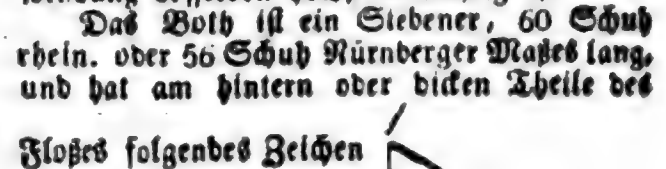 Das Both ist ein Siebener, 60 Schuh
rhein. oder 56 Schuh Nürnberger Maßes lang,
und hat am hintern oder dicken Theile des
Floßes folgendes Zeichen